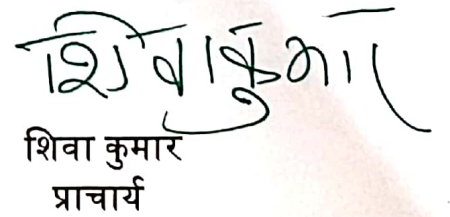 शिवाकुमार
शिवा कुमार
प्राचार्य